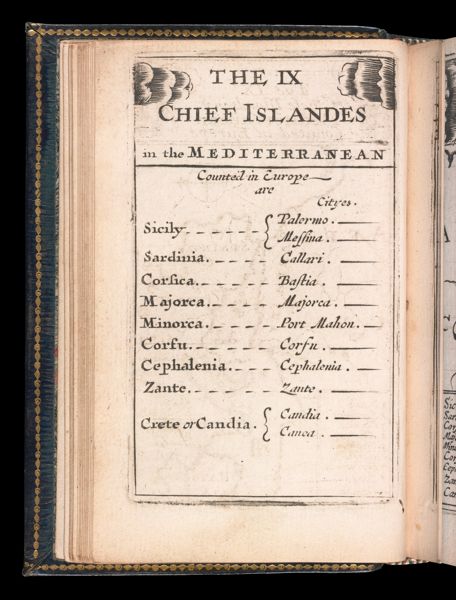 THE IX
CHIEF ISLANDES
in the MEDITERRANEAN
Counted in Europe
are
Cityes.
Sicily { Palermo.
Meſsina.
Sardinia. Callari.
Corſica. Baſtia.
Majorca. Majorca.
Minorca. Port Mahon.
Corfu. Corfu.
Cephalenia. Cephalenia.
Zante. Zante.
Crete or Candia. { Candia.
Canea.